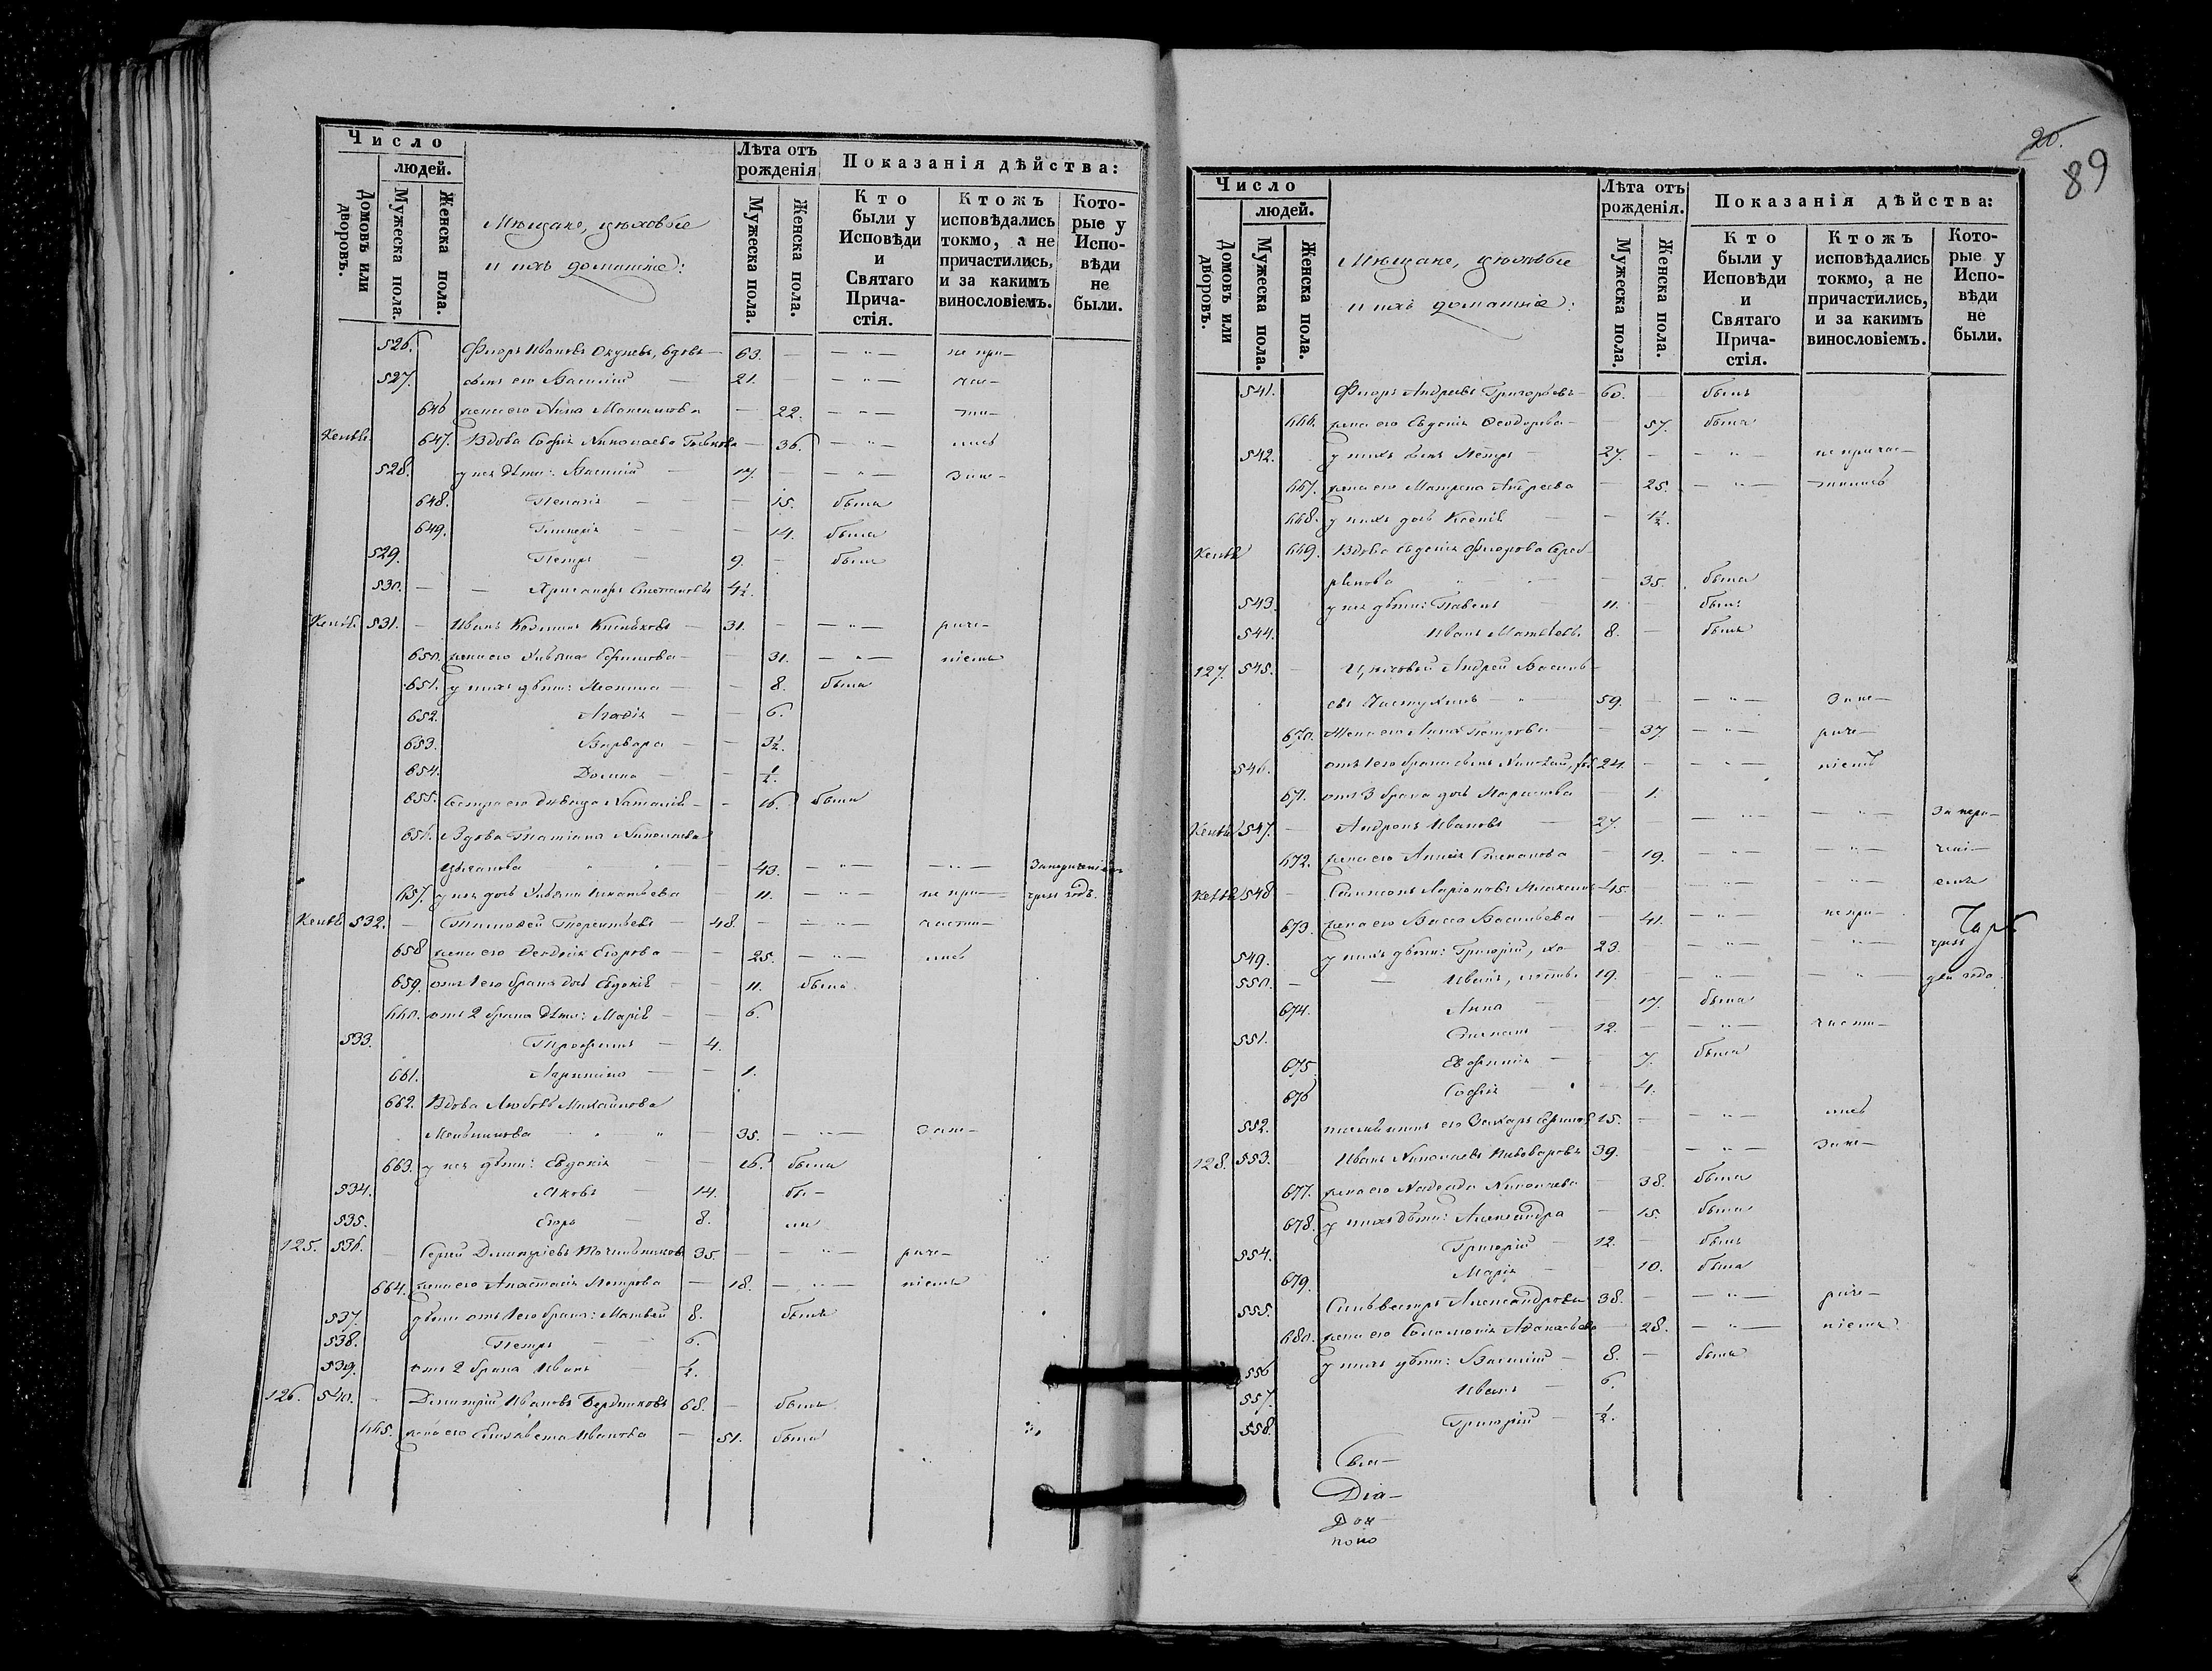 Число
людей.
Домовъ или дворовъ.
Мужеска пола.
Женска пола.
Мещане, цеховые
и ихъ домашніе:
Лѣта отъ рожденія
Мужеска пола.
Женска пола.
Показанія дѣйства:
Кто были у Исповѣди и Святаго Прича-стія.
Ктожъ исповѣдались токмо, а не причастились, и за какимъ винословіемъ.
Кото-рые у Испо-вѣди не были.
526. Флоръ Ивановъ Окуневъ, вдовъ — 63. — — „ — не при—
527. сынъ его Василій — 21. — — „ — час—
646 жена его Анна — 22. — „ — ти—
647. Вдова Софія Николаева — 36. — „ — лись
528. у нея дѣти: Василій — 17. — — „ — За не—
648. Пелагія — — — 15. была
649. Гликерія — — — 14. была
529. Петръ — 9. — былъ
530. — — Степановъ 4½.
531. — Иванъ Козминъ — 31. — — „ — раче—
650. жена его Ульяна Ефимова — — 31. — „ — ніемъ
651. у нихъ дѣти: — — 8. была
652. Агафія — — 6.
653. Варвара — — 3½.
654. Домна — — ½.
655. Сестра его дѣвица Наталія — — 16. была
656. Вдова Татіана Николаева
Цыганова „ — „ — — 43. — „ — — „ —
657. у нея дочь Ульяна Игнатьева — 11. — „ — не при—
532. — Тимофей Терентьевъ — 48. — — „ — части—
658 жена его Феодосія Егорова — — 25. — „ — лись
659. отъ 1го брака дочь Евдокія — — 11. была
660. отъ 2 брака дѣти: Марія — — 6.
533. Трофимъ — 4.
661. — — 1.
662. Вдова Любовь Михайлова
Мельникова „ — „ — 35. — „ — За не—
663. у нея дѣти: Евдокія — — 16. была
534. Яковъ — 14. бы—
535. Егоръ — 8. ли
125. 536. — Сергей Димитріевъ Точильниковъ 35. — — „ — раче—
664. жена его Анастасія Петрова — 18. — „ — ніемъ
537. дѣти отъ 1го брака: Матвей 8. былъ
538. Петръ — — 6.
539. отъ 2 брака Иванъ — ½.
126. 540. — Димитрій Ивановъ Бердниковъ 68. — былъ
665. жена его Елизавета Иванова — 51. была
20.
89
Число
людей.
Домовъ или дворовъ.
Мужеска пола.
Женска пола.
Мещане, цеховые
и ихъ домашніе:
Лѣта отъ рожденія.
Мужеска пола
Женска пола.
Показанія дѣйства:
Кто были у Исповѣди и Святаго Прича-стія.
Ктожъ исповѣдались токмо, а не причастились, и за какимъ винословіемъ.
Кото-рые у Испо-вѣди не были.
541. Флоръ Андреевъ Григорьевъ — 60. — былъ
666. жена его Евдокія Феодорова — — 57. была
542. у нихъ сынъ Петръ — 27. — — „ — не причас—
667. жена его Матрена Андреева — 25. — „ — тились
668. у нихъ дочь Ксенія — — 1½.
669. Вдова Евдокія Флорова Сереб—
рякова „ — „ — — 35. была
543. у нея дѣти: Павелъ — 11. — былъ
544. Иванъ 8. — былъ
127. 545. — Цеховой Андрей Василь—
евъ Пастухинъ — „ — 59. — — „ — За не—
670. Жена его Анна Петрова — — 37. — „ — раче—
546. отъ 1го брака сынъ Николай, 24. — — „ — ніемъ
671. отъ 3 брака дочь — 1.
547. — Андронъ Ивановъ — 27. — — „ — — „ — За нера—
672. жена его Степанова — 19. — „ — — „ — чені—
548 — Самсонъ Ларіоновъ 45. — — „ — — „ — емъ
673. жена его Васса Васильева — 41. — „ — не при—
549. у нихъ дѣти: Григорій, хо— 23. — — „ — — „ —
550. — — Иванъ, 19. — — „ — — „ — два года.
674. Анна — — 17. была
551. Степанъ — 12. — — „ — части—
675. Евфимія — — 7. была
676 Софія — — 4.
552. его Захаръ 15. — — „ — лись
128. 553. — Иванъ Николаевъ Пивоваровъ 39. — — „ — За не—
677. жена его Надежда Николаева — 38. была
678. у нихъ дѣти: Александра — 15. была
554. Григорій — 12. — былъ
679. Марія — — 10. была
555. Сильвестръ Александровъ 38. — — „ — раче—
680. жена его Соломонія — 28. — „ — ніемъ
556 у нихъ дѣти: Василій — 8. — былъ
557. Иванъ — 6.
558. Григорій — ½.